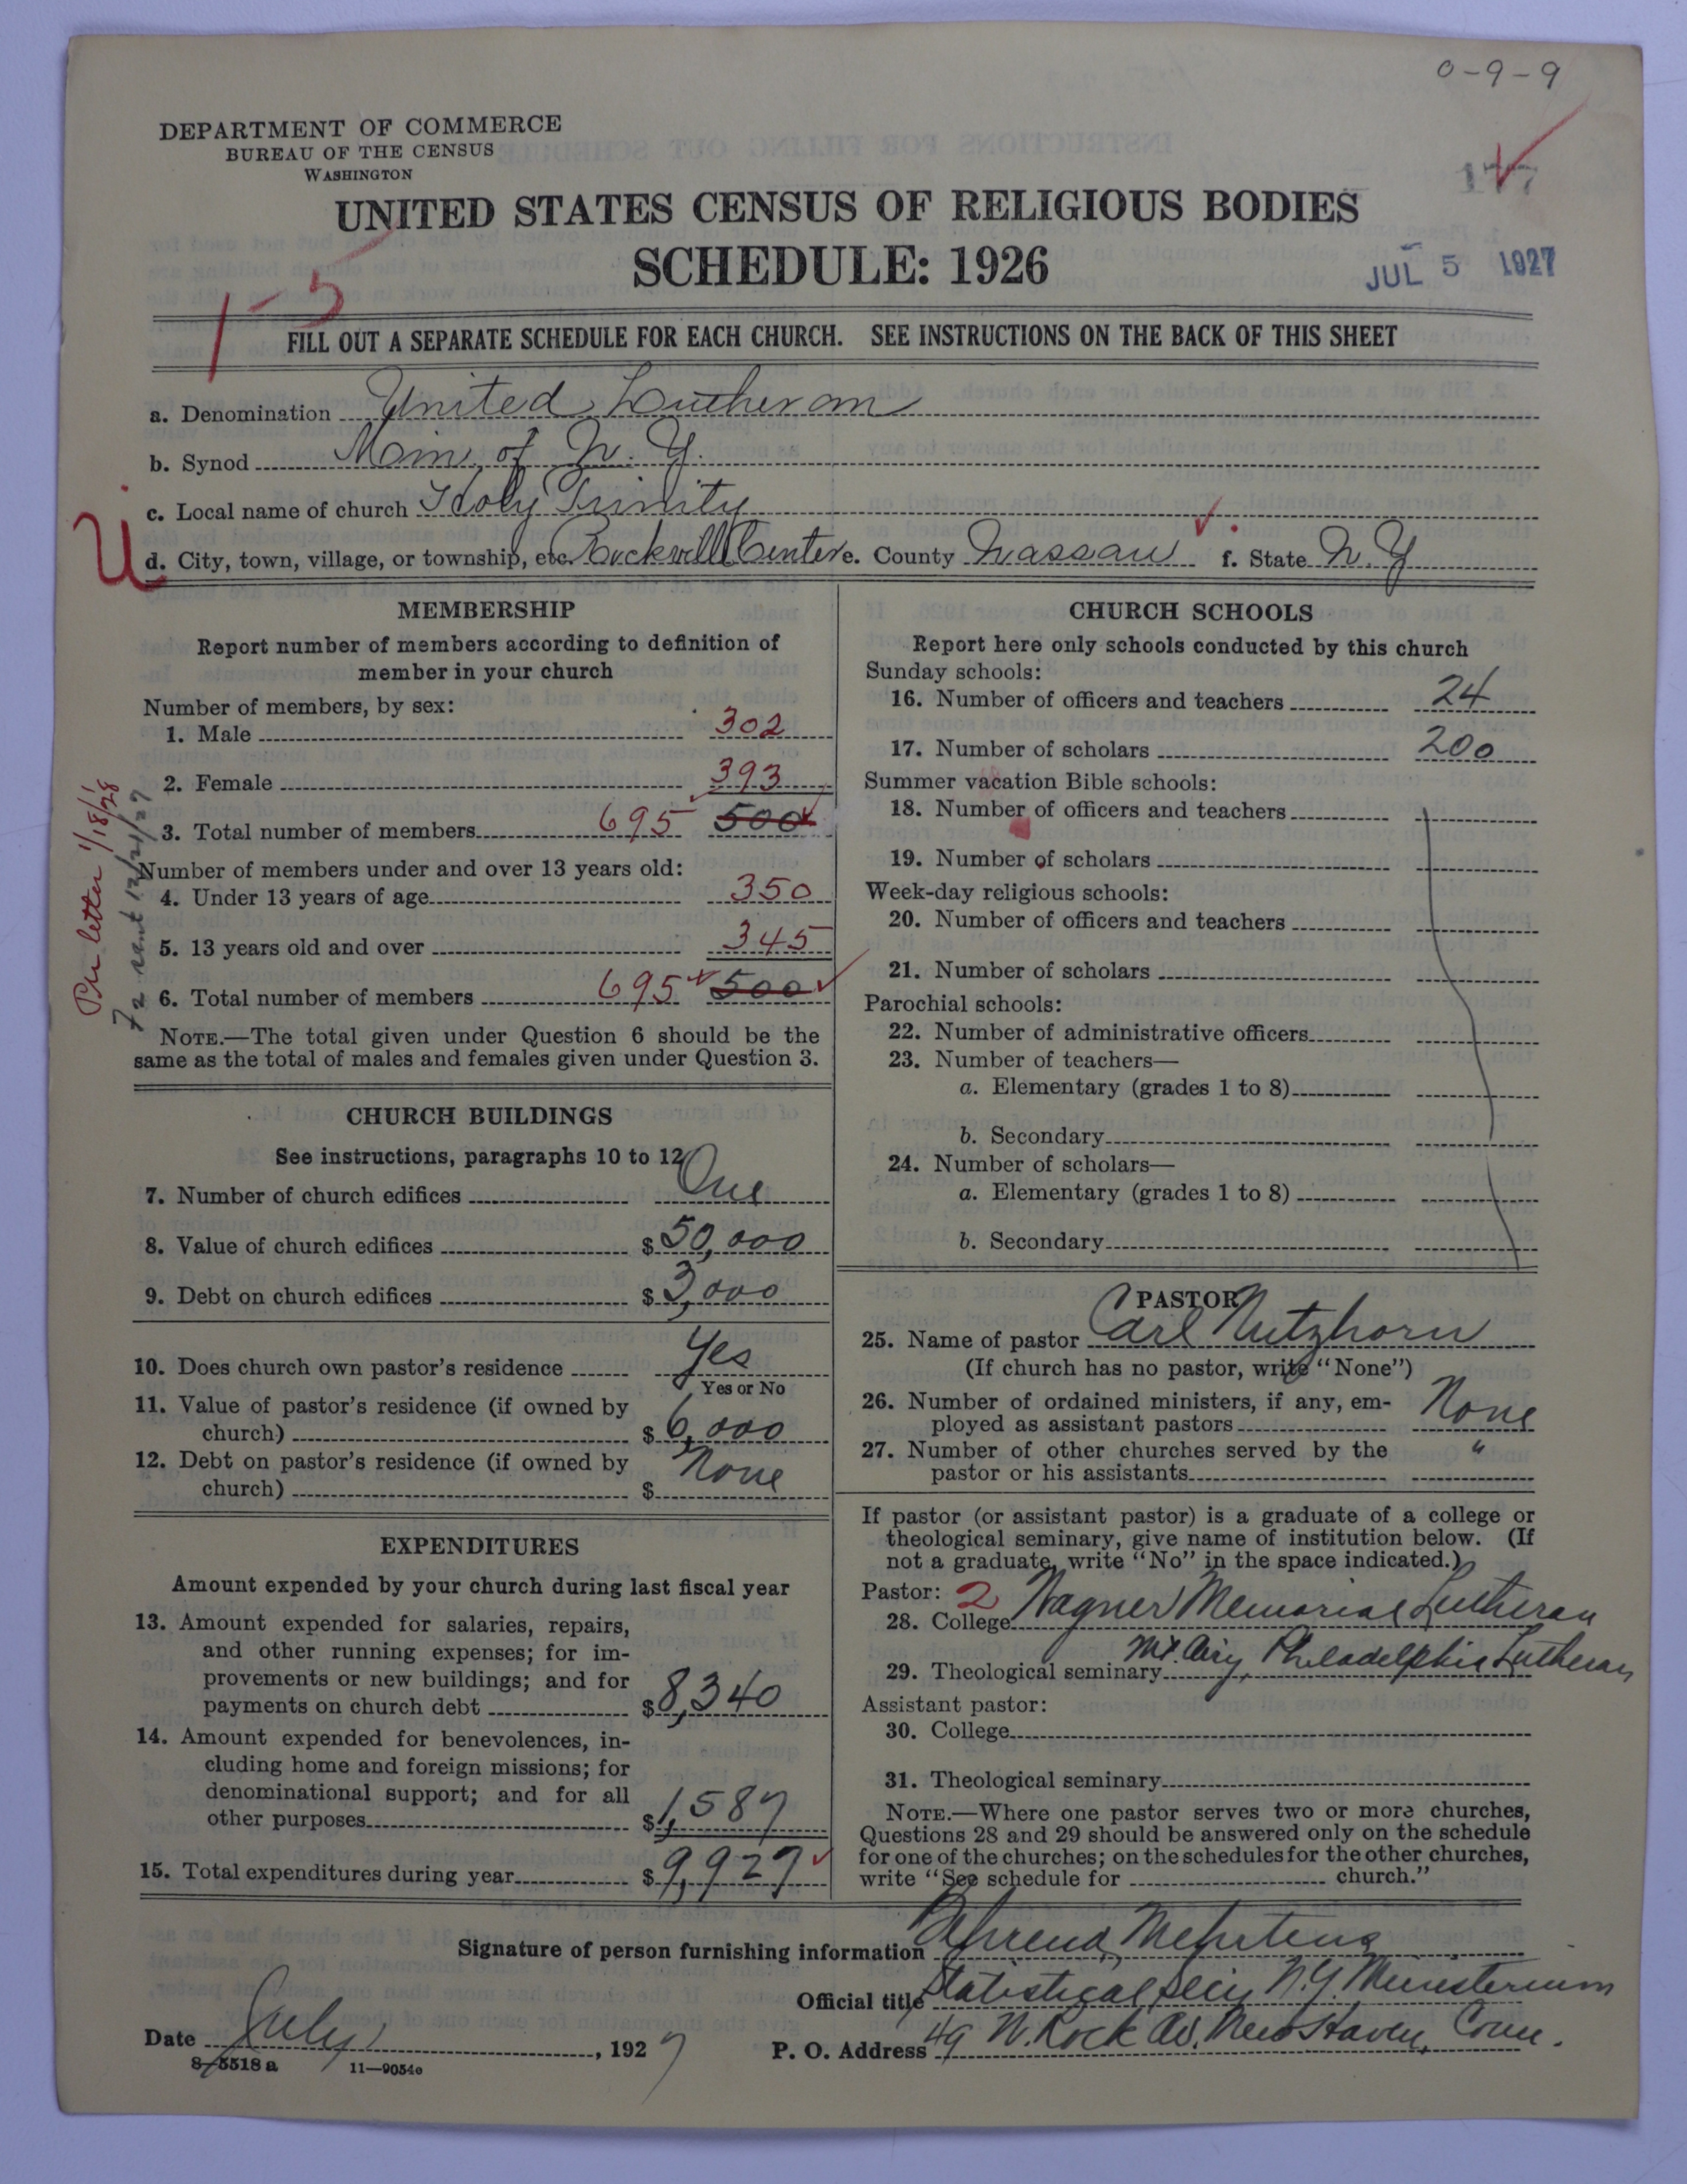 0-9-9
DEPARTMENT OF COMMERCE
BUREAU OF THE CENSUS
WASHINGTON
177
UNITED STATES CENSUS OF RELIGIOUS BODIES
SCHEDULE: 1926
JUL 5 1927
1-5
FILL OUT A SEPARATE SCHEDULE FOR EACH CHURCH. SEE INSTRUCTIONS ON THE BACK OF THIS SHEET
a. Denomination United Lutheran
b. Synod Min. of N. Y.
c. Local name of church Holy Trinity
d. City, town, village, or township, etc. Rockvill Center e. County Nassau f. State N. Y
MEMBERSHIP
Report number of members according to definition of
member in your church
Number of members, by sex:
1. Male 302
2. Female 393
3. Total number of members 695 500
Number of members under and over 13 years old:
4. Under 13 years of age 350
5. 13 years old and over 345
6. Total number of members 695 500
NOTE.—The total given under Question 6 should be the
same as the total of males and females given under Question 3.
Per letter 1/18/28
sent 12/21/27
CHURCH BUILDINGS
See instructions, paragraphs 10 to 12
7. Number of church edifices One
8. Value of church edifices $ 50,000
9. Debt on church edifices $ 3,000
10. Does church own pastor's residence Yes
Yes or No
11. Value of pastor's residence (if owned by
church) $ 6,000
12. Debt on pastor's residence (if owned by
church) $ None
EXPENDITURES
Amount expended by your church during last fiscal year
13. Amount expended for salaries, repairs,
and other running expenses; for im-
provements or new buildings; and for
payments on church debt $ 8,340
14. Amount expended for benevolences, in-
cluding home and foreign missions; for
denominational support; and for all
other purposes $ 1,587
15. Total expenditures during year $ 9,927
CHURCH SCHOOLS
Report here only schools conducted by this church
Sunday schools:
16. Number of officers and teachers 24
17. Number of scholars 200
Summer vacation Bible schools:
18. Number of officers and teachers
19. Number of scholars
Week-day religious schools:
20. Number of officers and teachers
21. Number of scholars
Parochial schools:
22. Number of administrative officers
23. Number of teachers—
a. Elementary (grades 1 to 8)
b. Secondary
24. Number of scholars—
a. Elementary (grades 1 to 8)
b. Secondary
PASTOR
25. Name of pastor Carl Nutzhorn
(If church has no pastor, write "None")
26. Number of ordained ministers, if any, em-
ployed as assistant pastors None
27. Number of other churches served by the "
pastor or his assistants
If pastor (or assistant pastor) is a graduate of a college or
theological seminary, give name of institution below. (If
not a graduate, write "No" in the space indicated.)
Pastor: 2
28. College Wagner Memorial Lutheran
29. Theological seminary Mt. Airy, Philadelphia Lutheran
Assistant pastor:
30. College
31. Theological seminary
NOTE.—Where one pastor serves two or more churches,
Questions 28 and 29 should be answered only on the schedule
for one of the churches; on the schedules for the other churches,
write "See schedule for church."
Signature of person furnishing information Behrend Mehrtens
Official title Statistical Secy N.Y. Ministerium
Date July 1, 1927 P. O. Address 49 N. Rock Av. New Haven, Conn.
8-5518 a 11—9054e